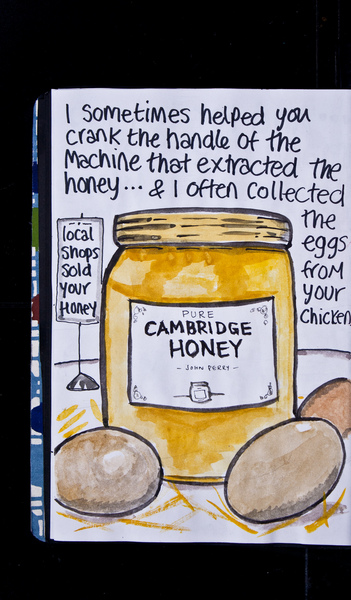 I sometimes helped you
crank the handle of the
Machine that extracted the
honey... & I often collected
the
eggs
from
your
chicken
local
shops
sold
your
Honey
PURE
CAMBRIDGE
HONEY
- JOHN PERRY -